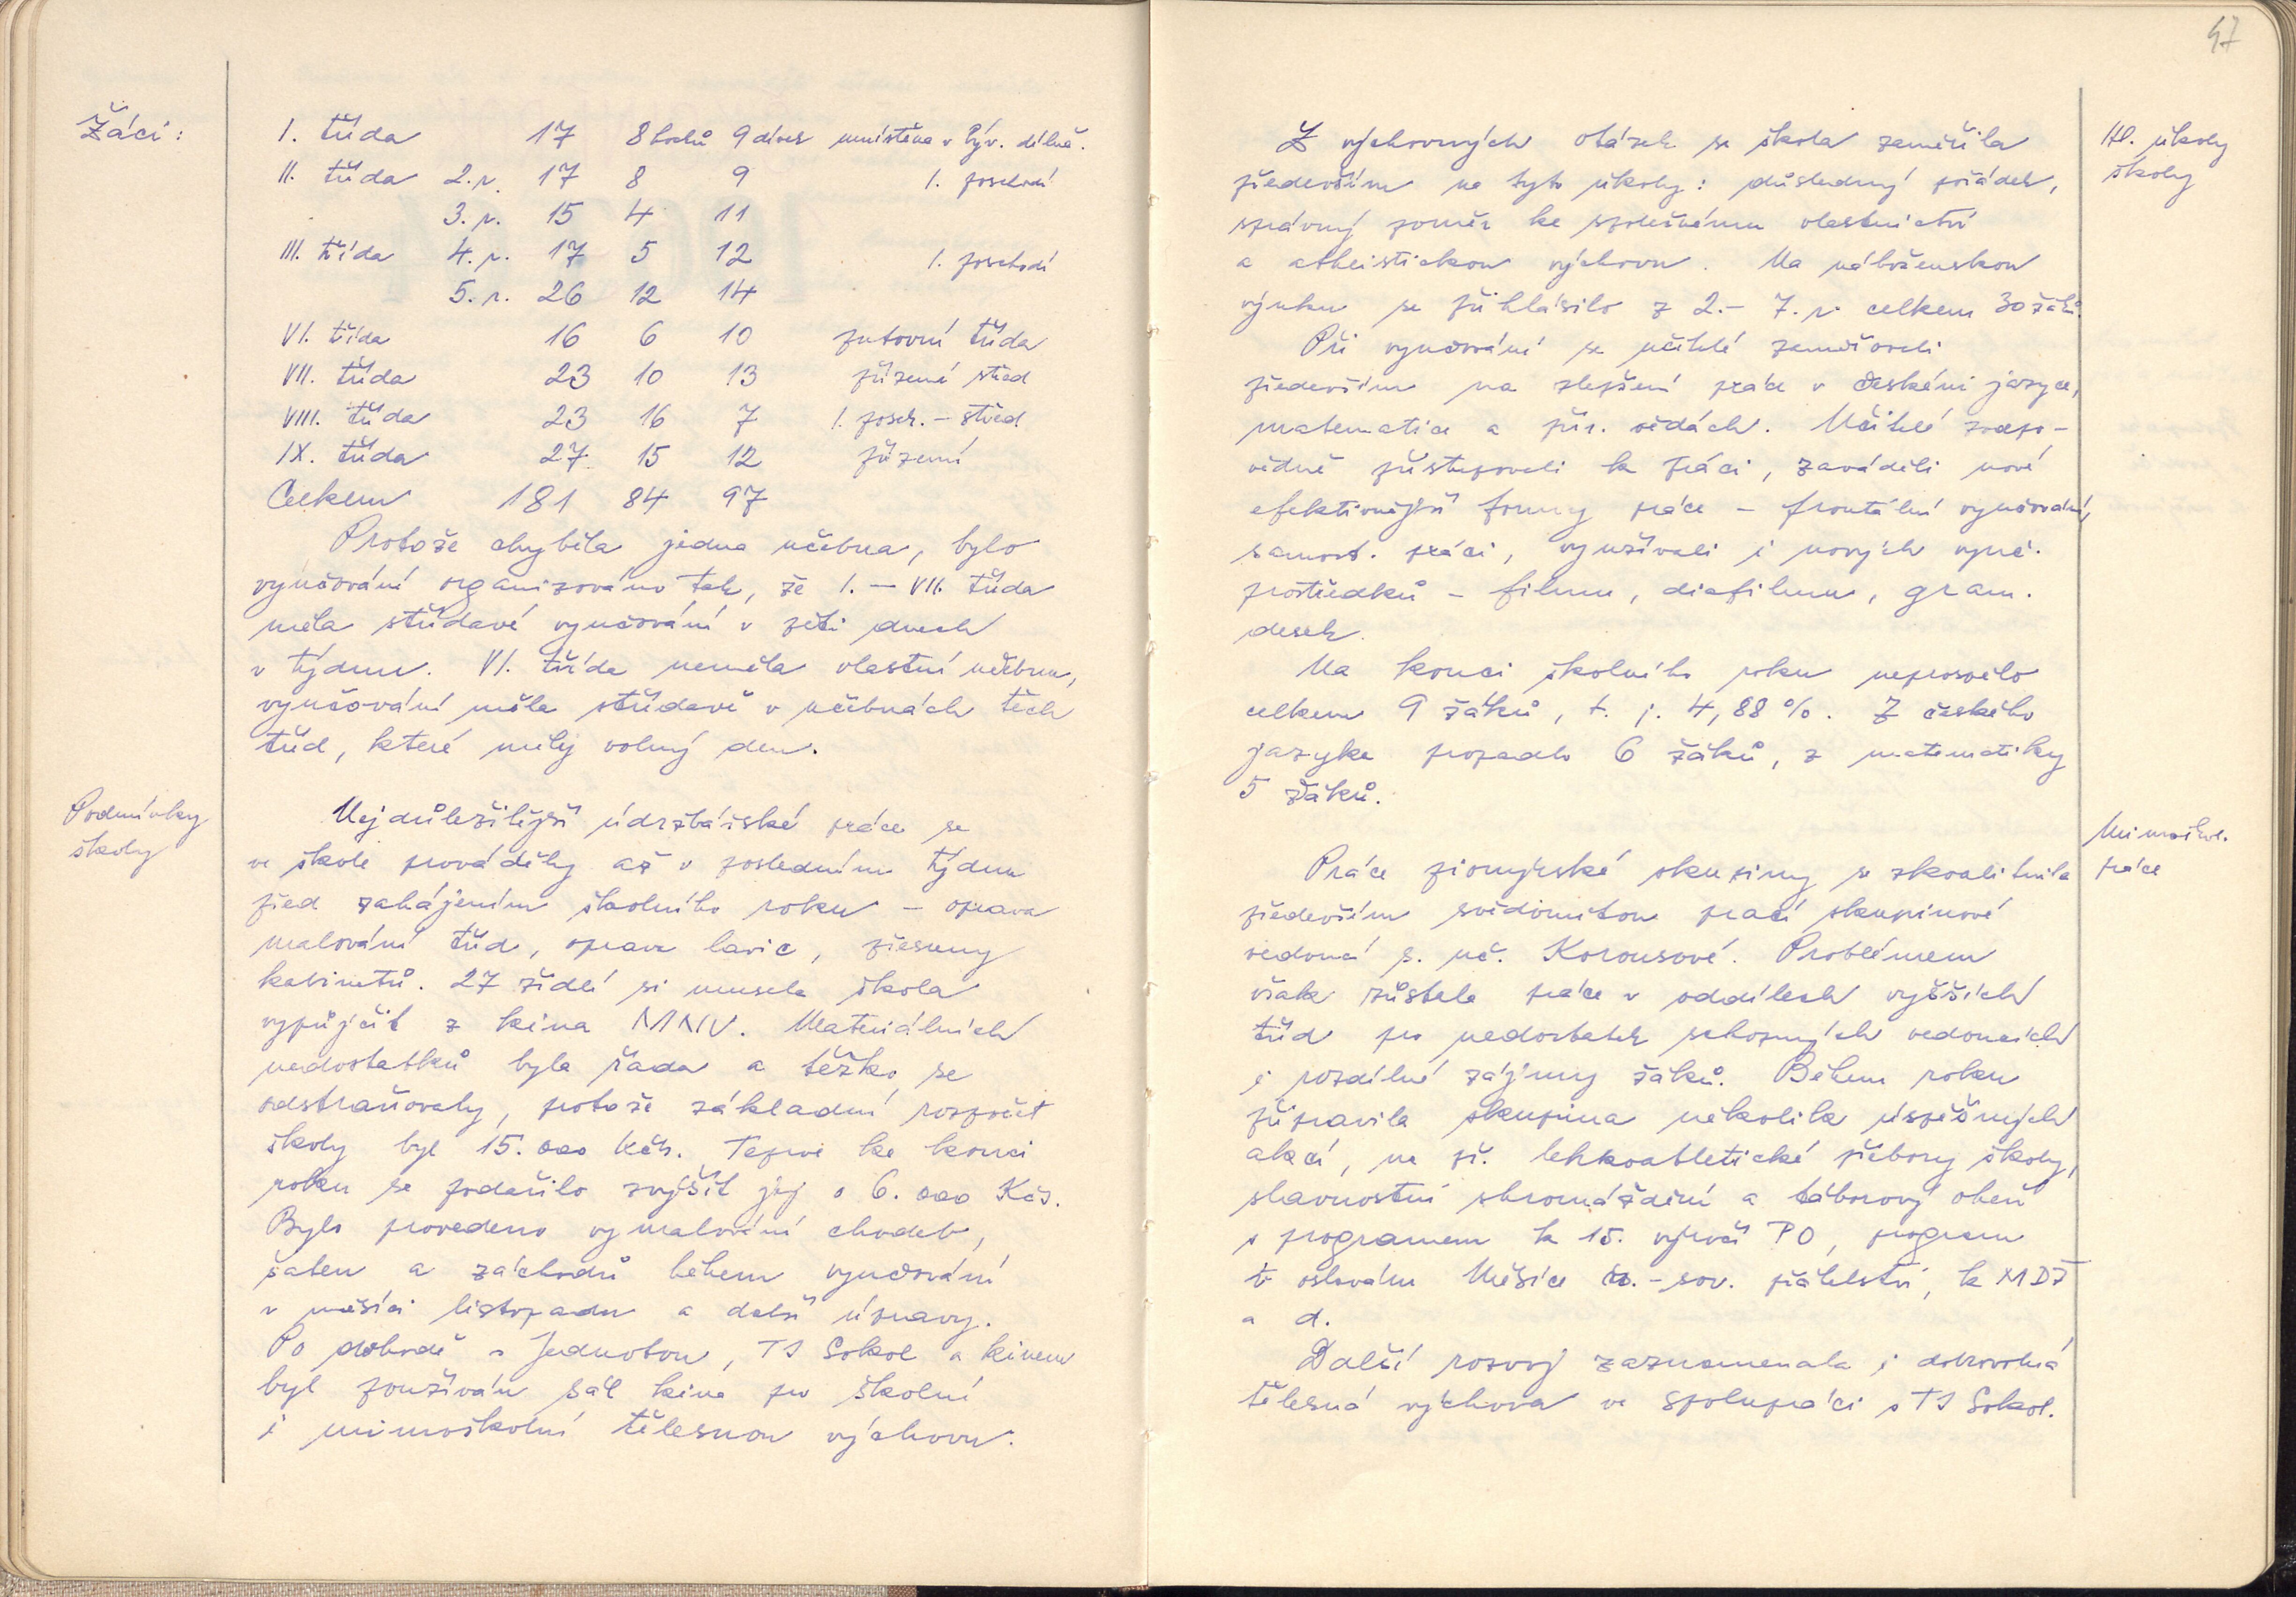 Žáci:
I. třída 17 8 hochů 9 dívek umístěna v býv. dílně.
II. třída 2. r. 17 8 9 1. poschodí
3. r. 15 4 11
III. třída 4. r. 17 5 12 1. poschodí
5. r. 26 12 14
VI. třída 16 6 10 putovní třída
VII. třída 23 10 13 přízemí střed
VIII. třída 23 16 7 1. posch. – střed
IX. třída 27 15 12 přízemí
Celkem 181 84 97
Protože chyběla jedna učebna, bylo
vyučování organizováno tak, že I. – VII. třída
měla střídavé vyučování v pěti dnech
v týdnu. VI. třída neměla vlastní učebnu,
vyučování měla střídavě v učebnách těch
tříd, které měly volný den.
Podmínky
školy
Nejdůležitější údržbářské práce se
ve škole prováděly až v posledním týdnu
před zahájením školního roku – oprava
malování tříd, oprava lavic, přesuny
kabinetů. 27 židlí si musela škola
vypůjčit z kina MNV. Materiálních
nedostatků byla řada a těžko se
odstraňovaly, protože základní rozpočet
školy byl 15.000 Kčs. Teprve ke konci
roku se podařilo zvýšit jej o 6.000 Kčs.
Bylo provedeno vymalování chodeb,
šaten a záchodů během vyučování
v měsíci listopadu a další úpravy.
Po dohodě s Jednotou, TJ Sokol a kinem
byl používán sál kina pro školní
i mimoškolní tělesnou výchovu.
47
Hl. úkoly
školy
Z výchovných otázek se škola zaměřila
především na tyto úkoly: důsledný pořádek,
správný poměr ke společnému vlastnictví
a atheistickou výchovu. Na náboženskou
výuku se přihlásilo z 2.– 7. r. celkem 30 žáků.
Při vyučování se učitelé zaměřovali
především na zlepšení práce v českém jazyce,
matematice a přír. vědách. Učitelé zodpo-
vědně přistupovali k práci, zaváděli nové
efektivnější formy práce – frontální vyučování,
samost. práci, využívali i nových vyuč.
prostředků – filmu, diafilmu, gram.
desek.
Na konci školního roku neprospělo
celkem 9 žáků, t. j. 4,88 %. Z českého
jazyka propadlo 6 žáků, z matematiky
5 žáků.
Mimoškol.
práce
Práce pionýrské skupiny se zkvalitnila
především svědomitou prací skupinové
vedoucí s. uč. Korousové. Problémem
však zůstala práce v oddílech vyšších
tříd pro nedostatek schopných vedoucích
i rozdílné zájmy žáků. Během roku
připravila skupina několik úspěšných
akcí, na př. lehkoatletické přebory školy,
slavnostní shromáždění a táborový oheň
s programem k 15. výročí PO, program
k oslavám Měsíce čs.-sov. přátelství, k MDŽ
a d.
Další rozvoj zaznamenala i dobrovolná
tělesná výchova ve spolupráci s TJ Sokol.